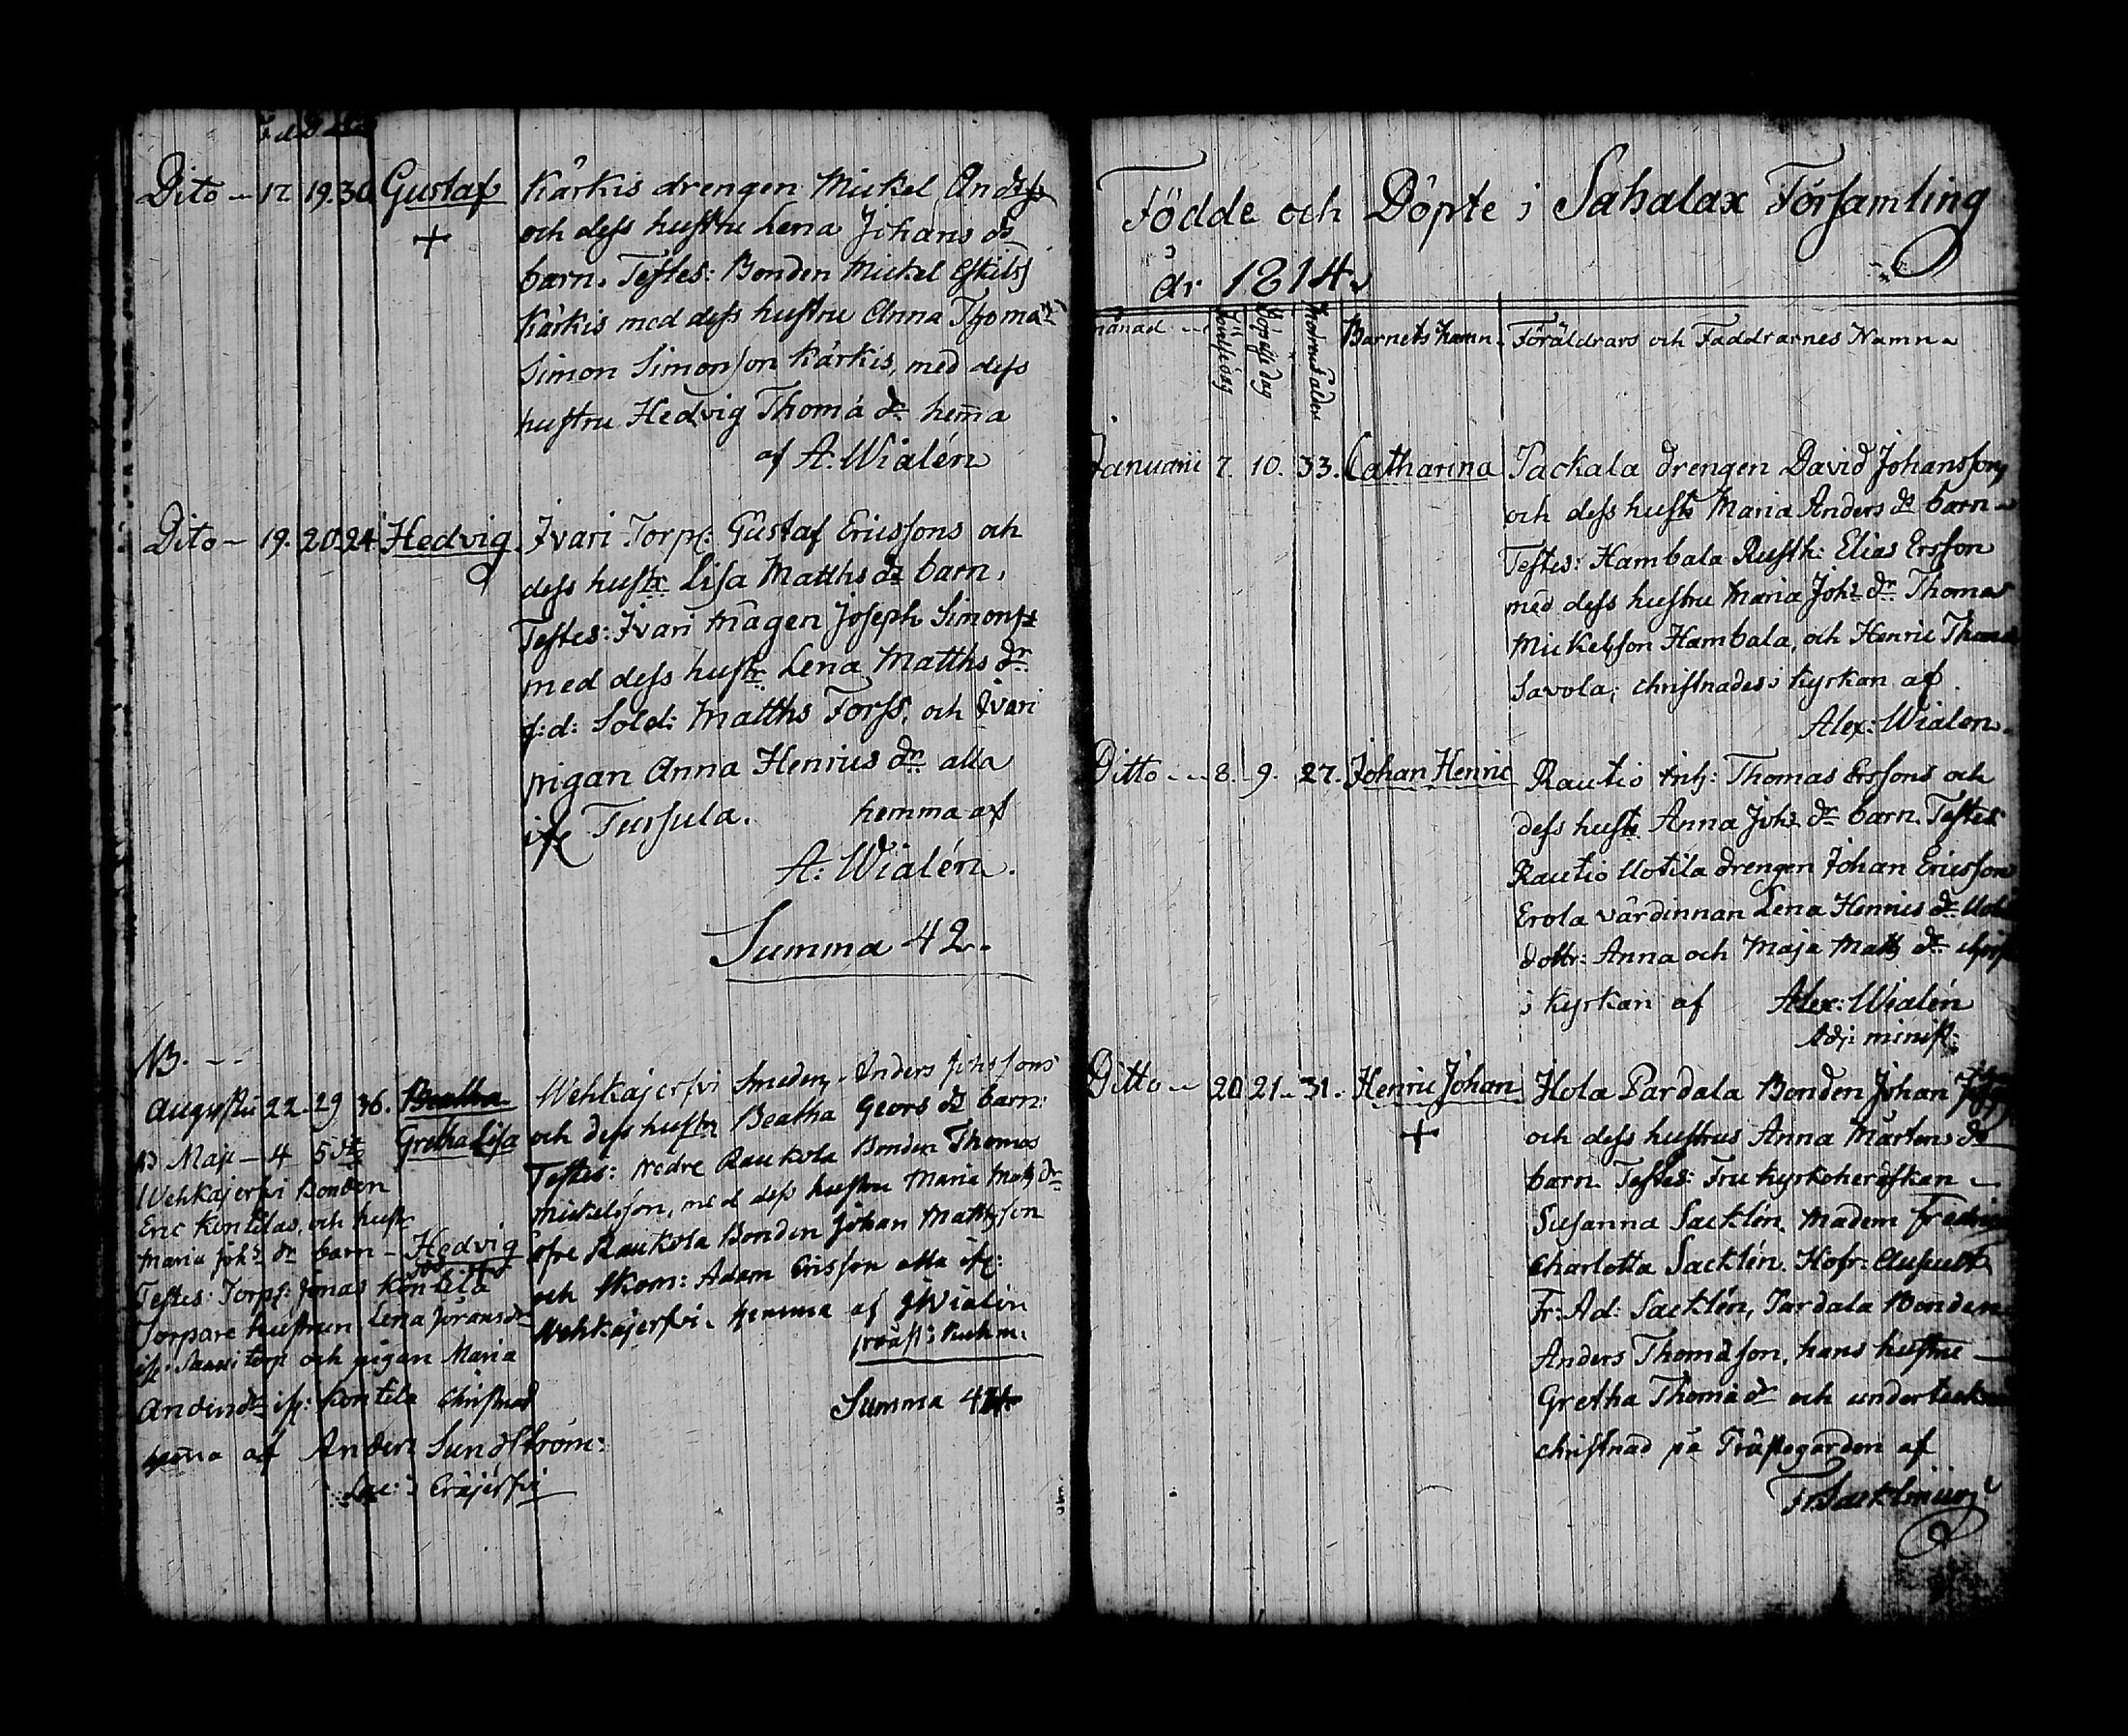 Dito 17 19. 30 Gustaf Kärkis drengen Mickel Andss
och dess hustru Lena Johans dr
barn. Testes: Bonden Mickel Eskilss
Kärkis med dess hustru Anna Thomædr
Simon Simonson Kärkis, med dess
hustru Hedvig Thomà dr hem̄a
af A. Wialén
Dito 19. 20 24 Hedvig Ivari Torp: Gustaf Ericssons och
dess hustr Lisa Matths dr barn.
Testes: Ivari Mågen Joseph Simonss
med dess hustr Lena Matths dr
f:d: Sold: Matths Forss, och Ivari
pigan Anna Henrics dr alla
ifr Tursula. hemma af
A: Wialén.
Summa 42.
NB.
Augusti 22. 29 36. Beatha Wehkajerfvi Smeden Anders Johssons
Gretha Lisa och dess hustr Beatha Geors dr barn.
Testes: Nedre Raukola Bonden Thomas
Mickelsson, med dess hustru Maria Matts dr
öfre Raukola Bonden Johan Mattsson
och Skom: Adam Ersson alla ifr:
Wehkajerfvi. hemma af J Wialén
Summa
Maji 4 5
Wehkajerfvi Bonden
Eric Kontilas, och hustr
Maria Joh:s dr barn - Hedvig
Testes: Torp: Jonas Kontila
Torpare hustrun Lena Jörans dr
torp och pigan Maria
Anders dr ifr: Kontila Christnad
hem̄a af Anders Sundström:
Sac: i Eräjerfvi
Födde och Döpte i Sahalax Församling
år 1814.
månad Födelsedag Döpelsedag Modrens ålder Barnets Namn. Föräldrars och Faddrarnes Namn
Januarii 7. 10. 33. Catharina Tackala drengen David Johansson
och dess hustr Maria Anders dr barn
Testes: Hambala Rusth: Elias Ersson
med dess hustru Maria Johs dr Thomas
Mickelsson Hambala, och Henric
Savola; christnades i kyrkan af
Alex: Wialen.
Ditto 8. 9. 27. Johan Henric Rautio Thomas Erssons och
dess hustr Anna Johs dr barn. Testes:
Rautio Uotila drengen Johan Ericsson
Erola värdinnan Lena Henrics dr
dottr: Anna och Maja Matts dr
i kyrkan af Alex: Wialén
Adj: minist:
Ditto 20 21 31. Henric Johan Hola Pardala Bonden Johan
och dess hustrus Anna Mårtens dr
barn. Testes: Fru kyrkoherdskan
Susanna Sacklén, Madem
Charlotta Sacklén. Hofr: Auscult
Fr: Ad: Sacklén, Pardala Bonden
Anders Thomàson, hans hustru
Gretha Thomà dr och
christnad på Prästegården af